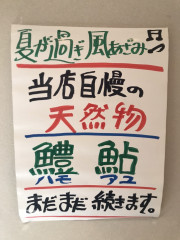 夏が過ぎ風あざみ♫
当店自慢の
天然物
鱧 鮎
ハモ アユ
まだまだ続きます。